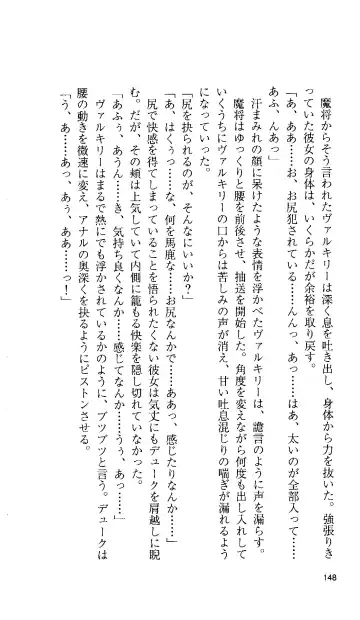 魔将からそう言われたヴァルキリーは深く息を吐き出し、身体から力を抜いた。強張りき
っていた彼女の身体は、いくらかだが余裕を取り戻す。
「あ、ああ……お、お尻犯されている……んんっ、あっ……はあ、太いのが全部入って……
あふ、んあっ」
汗まみれの顔に呆けたような表情を浮かべたヴァルキリーは、譫言のように声を漏らす。
魔将はゆっくりと腰を前後させ、抽送を開始した。角度を変えながら何度も出し入れして
いくうちにヴァルキリーの口からは苦しみの声が消え、甘い吐息混じりの喘ぎが漏れるよう
になっていった。
「尻を抉られるのが、そんなにいいか？」
「あ、はくぅっ……な、何を馬鹿な……お尻なんかで……ああっ、感じたりなんか……」
尻で快感を得てしまっていることを悟られたくない彼女は気丈にもデュークを肩越しに睨
む。だが、その頬は上気していて内側に籠もる快楽を隠し切れていなかった。
「あふぅ、あうん……き、気持ち良くなんか……感じてなんか……うぅ、あっ……」
ヴァルキリーはまるで熱にでも浮かされているかのように、ブツブツと言う。デュークは
腰の動きを微速に変え、アナルの奥深くを抉るようにピストンさせる。
「う、あ……あっ、あぅ、ああ……っ！」
148